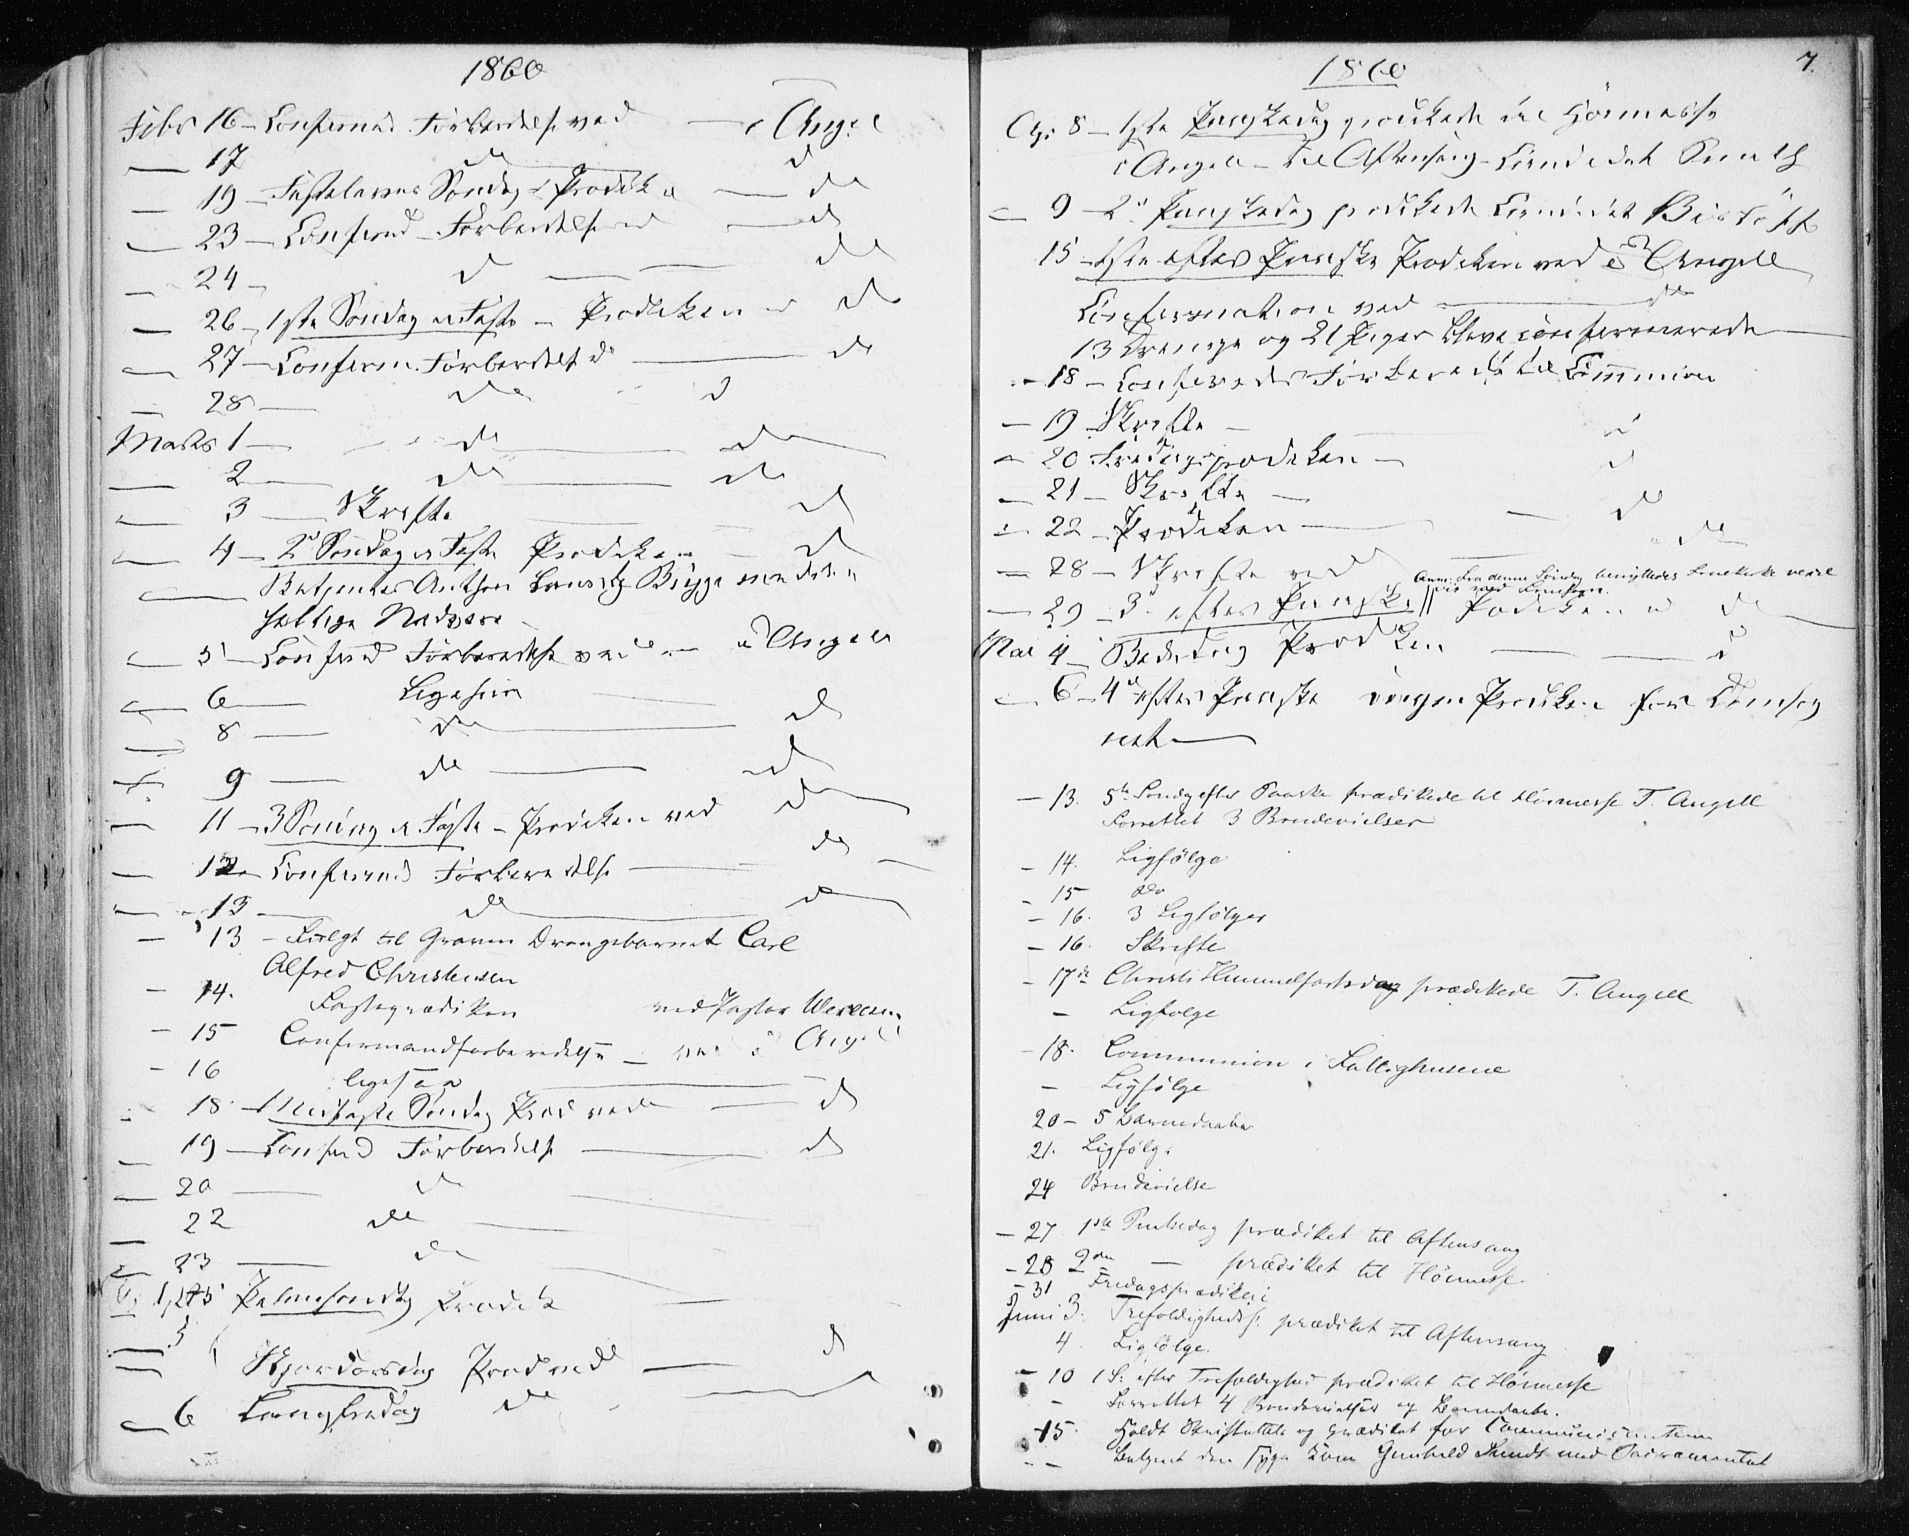 1860
Febr 16 – Confirmand Forberedelse ved — Angel
— 17 do do
— 19 – Fastelavns Søndag Prædik — do
— 23 – Confirmd – Forberedelse — do
— 24 – d — — do
— 26 – 1ste Søndag i Faste – Prædiken — do
— 27 – Confirm. Forberedelse do — do
— 28 — do d
Marts 1 — do — do
— 2 — do — do
— 3 — Skrifte — d
— 4 – 2d Søndag i Faste Prædiken — d
— Betjentes Anthon Brygge med det
hellige Nadvere
— 5 – Confirmd Forberedelse ved — Angell
— 6 — Ligesaa
— 8 — do — d
— 9 — do — d
— 11 – 3 Søndag i Faste – Prediken ved do
— 12 – Confirmd Forberedelse — do
— 13 — do — do
— 13 – Fulgt til Graven Drengebarnet Carl
Alfred Christensen
– 14. Fasteprædiken ved Pastor
– 15 Confirmandforberedelse – ved Angell
– 16 ligesaa
18 – Midfaste Søndag Præd ved — d
— 19 – Confirmd Forberedelse — d
— 20 — d
— 22 do
— 23 — do
1, Palmesøndag Prædik
— 5 Skjærtorsdag Præd ved — d
— 6 Langfredag do
1860
7.
Apr 8 – 1ste Paaskedag prædikede til Høimesse
Angell – til Aftensang – Candidat
— 9 – 2d Paaskedag prædikede Candidat
15 – 1ste efter Paaske Prædiken ved Angell
Confirmation ved — do
13 Drenge og 21 Piger bleve confirmerede
– 18 – Confirmeds Forberedelse til Communion
— 19 Skrifte — d
— 20 Fredagsprædiken — d
— 21 – Skrifte — d
— 22 – Prædiken — do
— 28 – Skrifte ved
Anm: Fra denne Søndag benyttedes
— 29 – 3d efter Paaske // Prædiken d
Mai 4 – Bededag Prædiken — d
— 6 – 4de efter Paaske ingen Prædiken for Domsog
net —
– 13. 5te Søndag efter Paaske prædikede til Høimesse T. Angell
Forrettet 3 Brudevielser
– 14. Ligfølge
– 15 do
– 16. 3 Ligfølger
– 16. Skrifte
– 17de Christi Himmelfartsdag prædikede T. Angell
– Ligfølge
– 18. Communion i Fattighusene
– Ligfølge
20 – 5 Barnedaabe
21. Ligfølge
24 Brudevielse
– 27 1ste Pintsedag prædiket til Aftensang
– 28 2den — prædiket til Høimesse
– 31 Fredagsprædiken
Juni 3. Trefoldigheds s. prædiket til Aftensang
4 Ligfølge.
– 10 1 S. efter Trefoldighed prædiket til Høimesse
– Forrettet 4 Brudevielser og Barnedaabe.
– 15. Holdt Skriftetale og prædiket for Communicanterne
– – Betjent den syge Kone Gunhild med Sacramentet